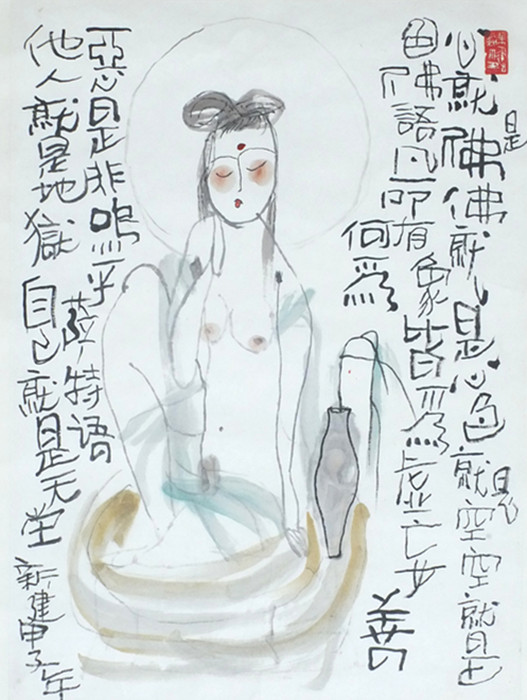 心就是佛佛就是心色就是空空就是
色佛語凡所有象皆爲虛妄
何爲
善
惡是非嗚乎
薩特語
他人就是地獄自己就是天堂
新建甲子年